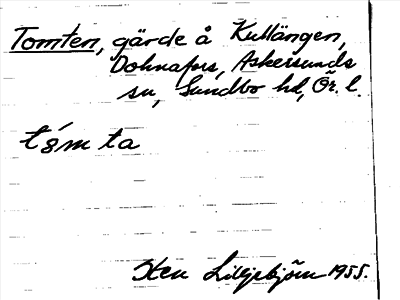 Tomten, gärde å Kullängen,
Dohnafors, Askersunds
sn, Sundbo hd, Ör. l.
tómta
Sten Liljebjörn 1955.